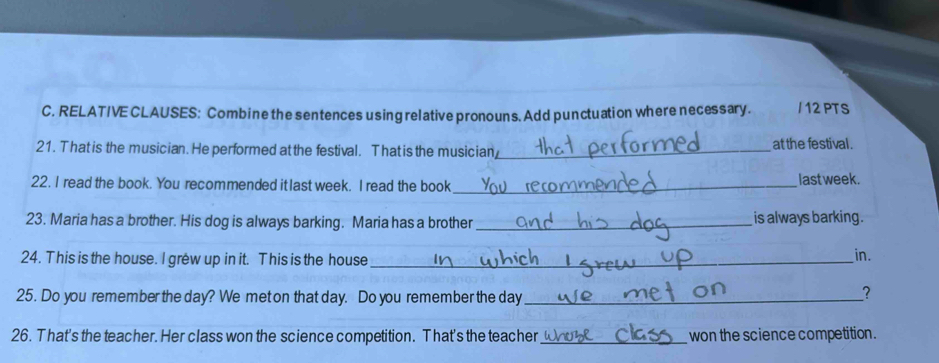 C. RELATIVE CLAUSES: Combine the sentences using relative pronouns. Add punctuation where necessary. / 12 PTS
21. That is the musician. He performed at the festival. That is the musician, that performed at the festival.
22. I read the book. You recommended it last week. I read the book You recommended last week.
23. Maria has a brother. His dog is always barking. Maria has a brother and his dog is always barking.
24. This is the house. I grew up in it. This is the house in which I grew up in.
25. Do you remember the day? We met on that day. Do you remember the day we met on ?
26. That's the teacher. Her class won the science competition. That's the teacher whose class won the science competition.